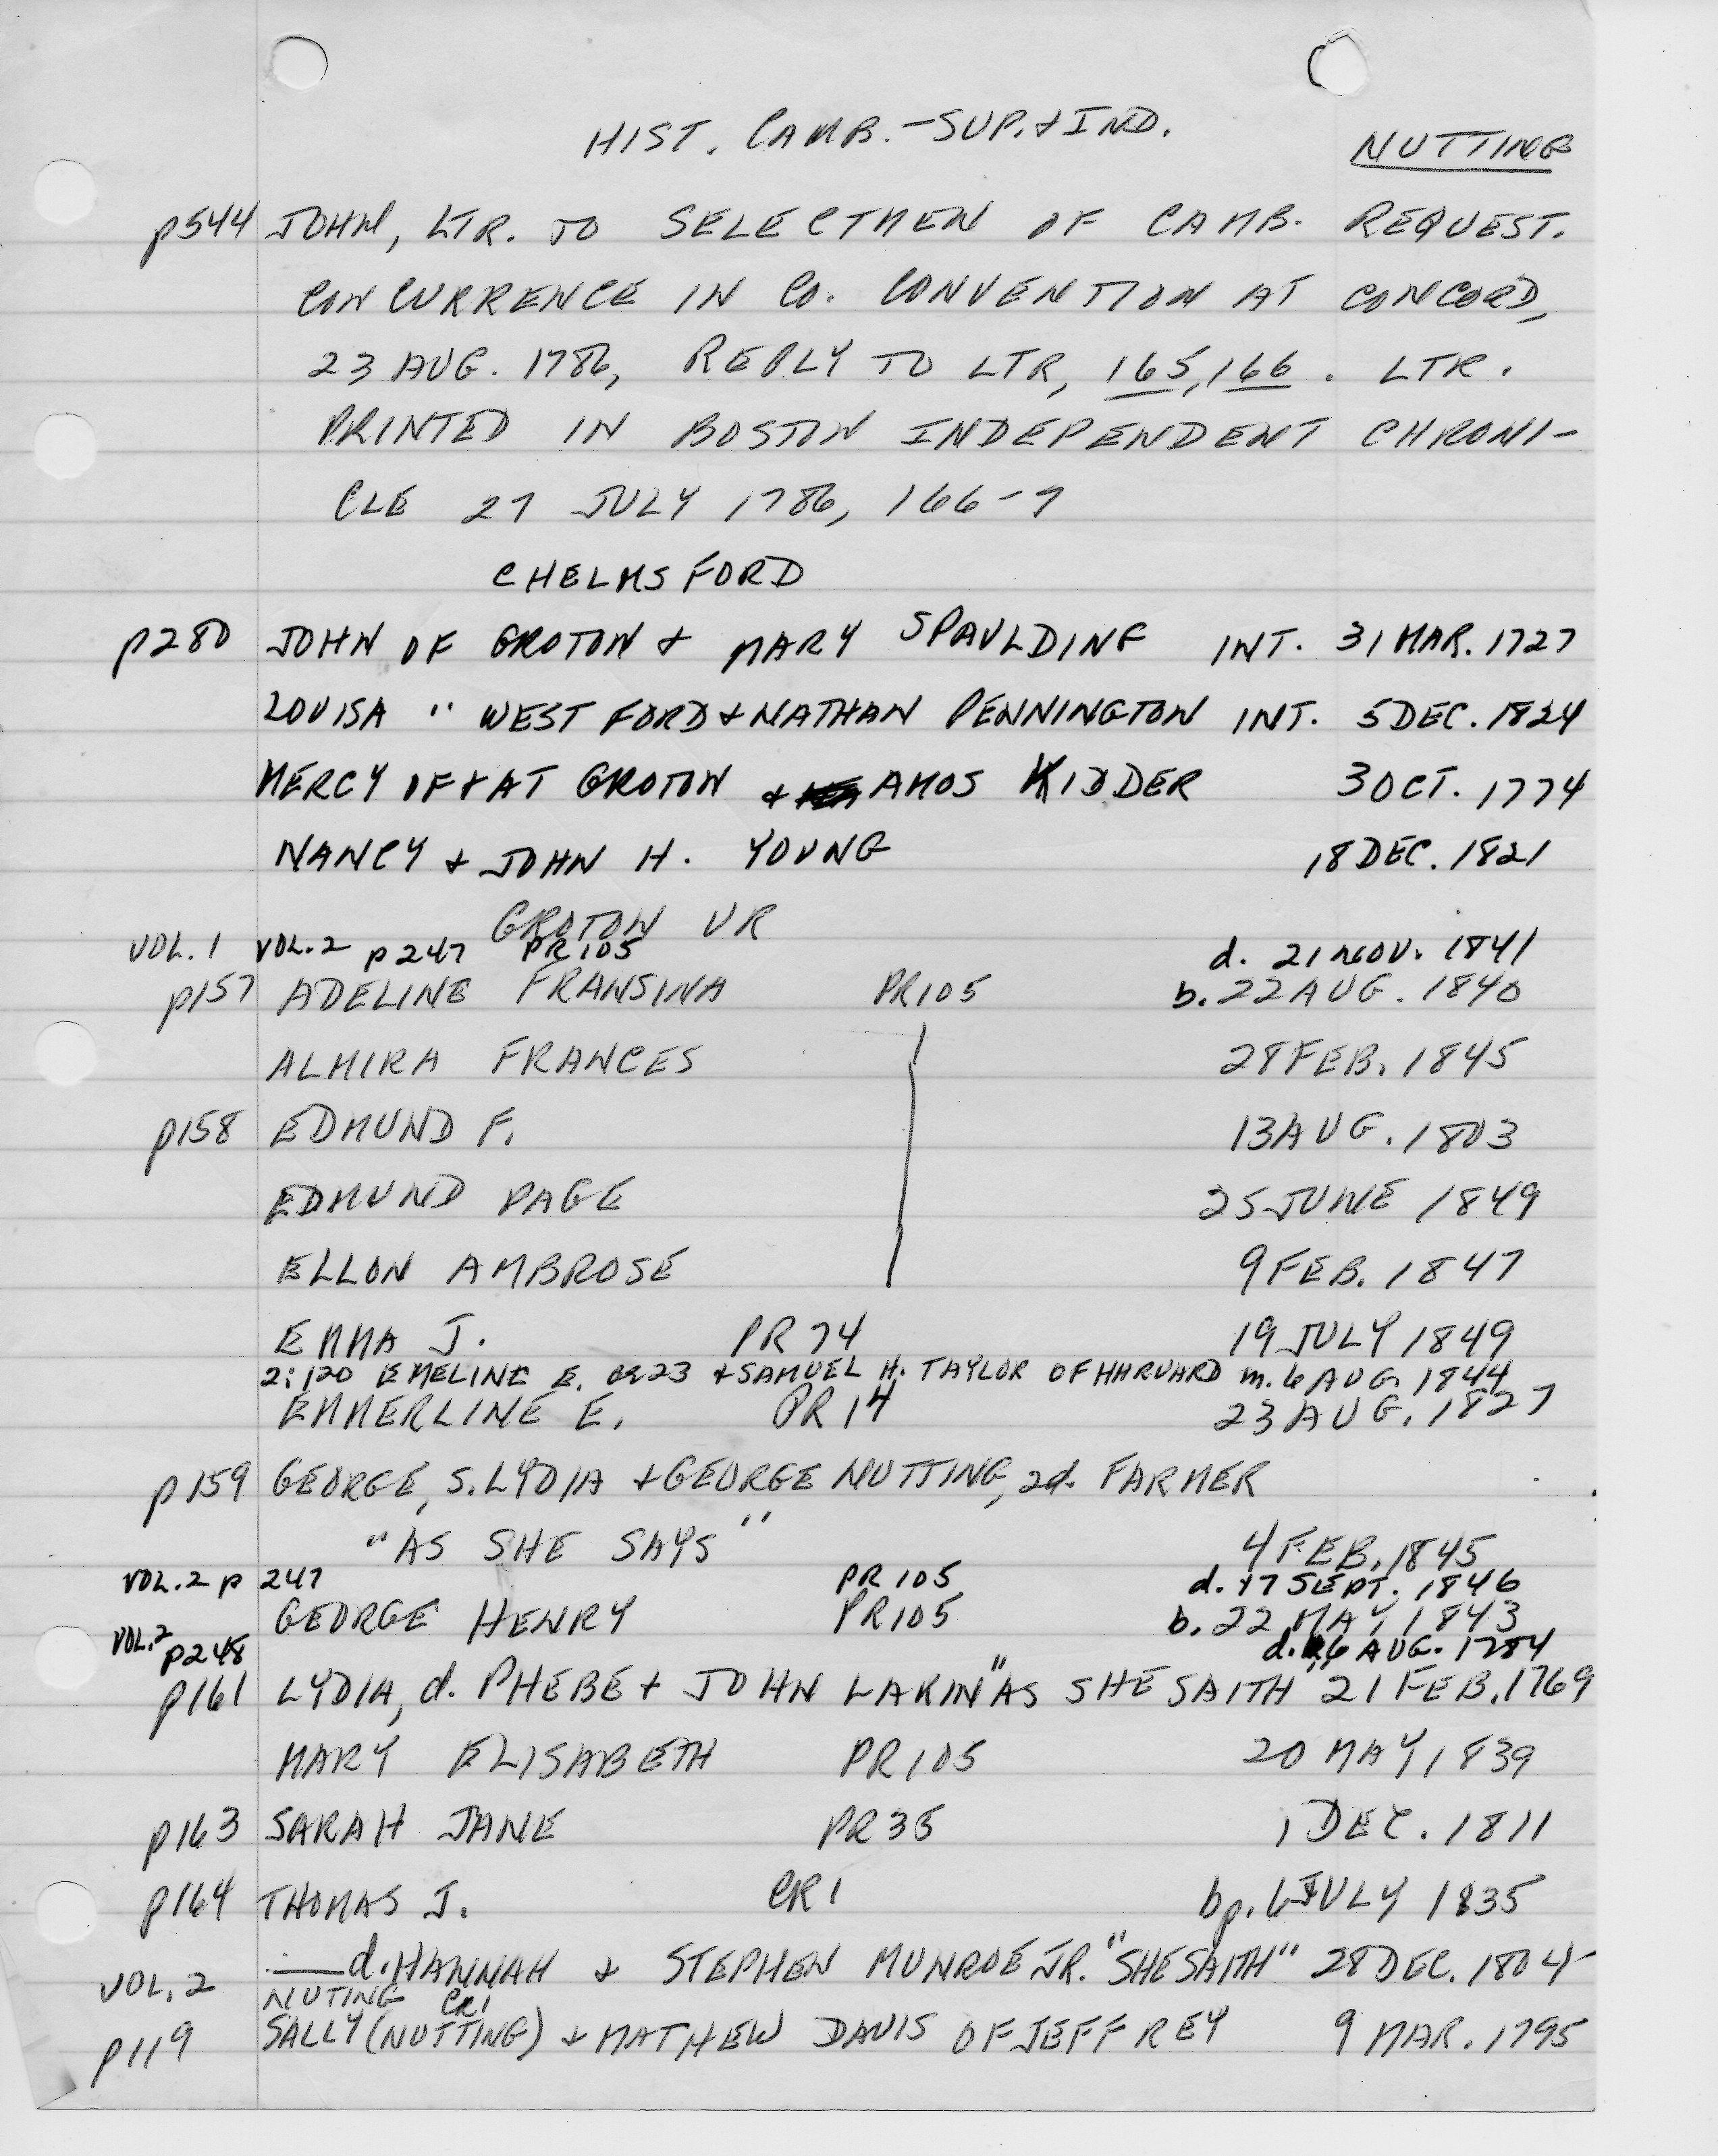 HIST. CAMB. - SUP. & IND.
NUTTING
p544 JOHN, LTR. TO SELECTMEN OF CAMB. REQUEST.
CONCURRENCE IN CO. CONVENTION AT CONCORD,
23 AUG. 1786, REPLY TO LTR, 165, 166. LTR.
PRINTED IN BOSTON INDEPENDENT CHRONI-
CLE 27 JULY 1786, 166-7
CHELMSFORD
p280 JOHN OF GROTON & MARY SPAULDING INT. 31 MAR. 1727
LOUISA " WESTFORD & NATHAN PENNINGTON INT. 5 DEC. 1824
MERCY OF & AT GROTON & AMOS KIDDER 3 OCT. 1774
NANCY & JOHN H. YOUNG 18 DEC. 1821
GROTON VR
VOL. 1 VOL. 2 p247 PR105 d. 21 NOV. 1841
p157 ADELINE FRANSINA PR105 b. 22 AUG. 1840
ALMIRA FRANCES 28 FEB. 1845
p158 EDMUND F. 13 AUG. 1803
EDMUND PAGE 25 JUNE 1849
ELLON AMBROSE 9 FEB. 1847
EMMA J. PR74 19 JULY 1849
2:120 EMELINE E. 23 & SAMUEL H. TAYLOR OF HARVARD m. 6 AUG. 1844
EMMERLINE E. PR14 23 AUG. 1827
p159 GEORGE, S. LYDIA & GEORGE NUTTING, 2d. FARMER
"AS SHE SAYS" 4 FEB. 1845
VOL. 2 p 247 PR105 d. 17 SEPT. 1846
GEORGE HENRY PR105 b. 22 MAY 1843
VOL. 2 p248 d. 6 AUG. 1784
p161 LYDIA, d. PHEBE & JOHN LAKIN "AS SHE SAITH" 21 FEB. 1769
MARY ELISABETH PR105 20 MAY 1839
p163 SARAH JANE PR35 1 DEC. 1811
p164 THOMAS J. CR1 bp. 6 JULY 1835
— d. HANNAH & STEPHEN MUNROE JR. "SHE SAITH" 28 DEC. 1804
VOL. 2 NUTING CR1
p119 SALLY (NUTTING) & MATHEW DAVIS OF JEFFREY 9 MAR. 1795